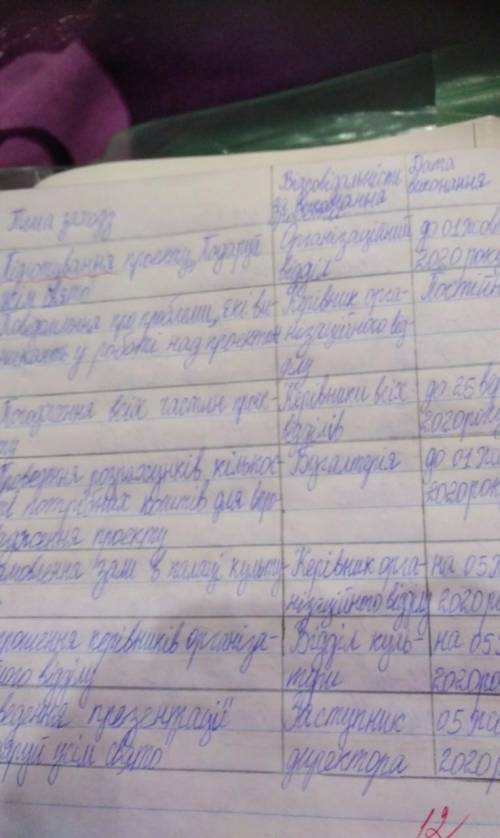 Тема заходу
Відповідальність
за виконання
Дата
виконання
Підготування проєкту „Подаруй
усім свято
Організаційний
відділ
до 01 жов
2020 року
Повідомлення про проблеми, які ви-
никають у роботі над проєктом
Керівник орга-
нізаційного від-
ділу
Постійно
Погодження всіх частин проє-
ту
Керівники всіх
відділів
до 25 вер
2020 року
Проведення розрахунків кількос-
ті потрібних коштів для впро-
вадження проєкту
Бухгалтерія
до 01 жо
2020 рок
мовлення зали в палаці культу-
Керівник орга-
нізаційного відділу
на 05
2020 рок
прошення керівників організа-
ного відділу
Відділ куль-
тури
на 05
2020 ро
ведення презентрації
аруй усім свято
Заступник
директора
05
2020 р
12